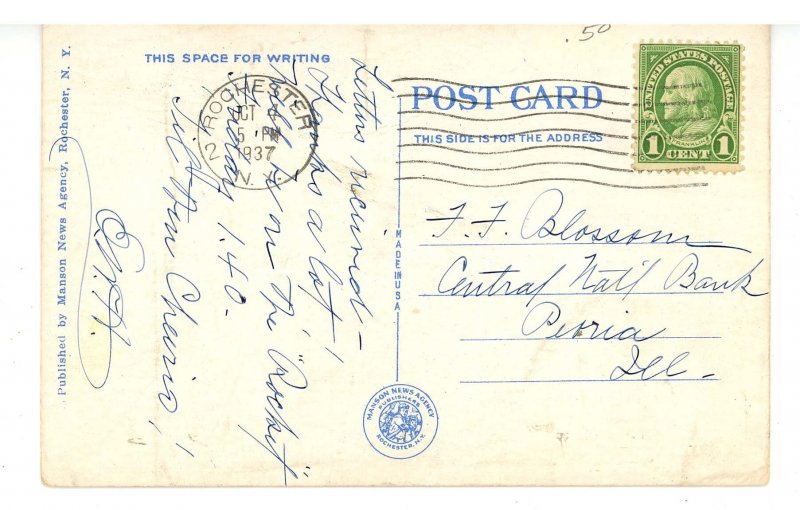 .50
THIS SPACE FOR WRITING
Letters received –
Thanks a lot!
on the "Rocket"
Friday 1.40 –
Till then Cheerio!
Published by Manson News Agency, Rochester, N. Y.
ROCHESTER
OCT 4
5 PM
1937
N. Y.
2
POST CARD
THIS SIDE IS FOR THE ADDRESS
UNITED STATES POSTAGE
FRANKLIN
1 CENT 1
F. F. Blossom
Central Nat'l Bank
Peoria
Ill –
MADE IN USA
MANSON NEWS AGENCY
PUBLISHERS
ROCHESTER, N.Y.